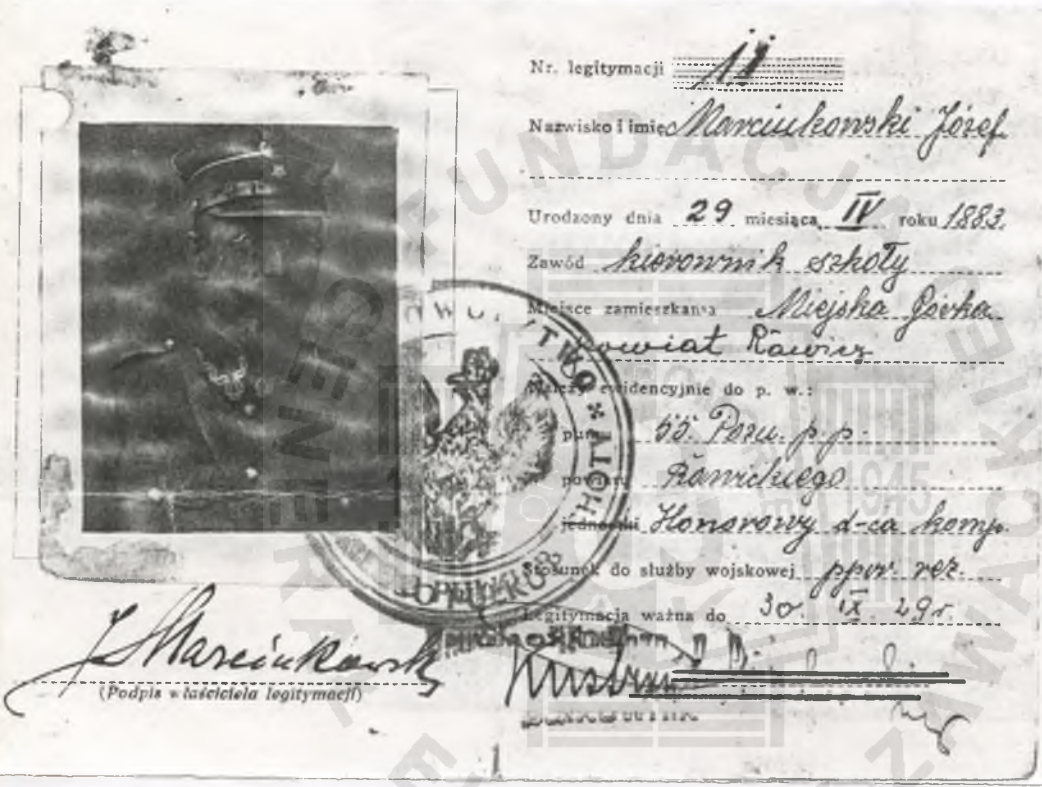 Nr. legitymacji 11
Nazwisko i imię Marciukowski Józef
Urodzony dnia 29 miesiąca IV roku 1883.
Zawód kierownik szkoły
Miejsce zamieszkania Miejska Górka
Powiat Rawicz
Należy ewidencyjnie do p. w.:
55. Pozn. p.p.
powiatu Rawickiego
jednostki Honorowy d-ca komp.
Stosunek do służby wojskowej ppor. rez.
Legitymacja ważna do 30. IX. 29 r.
J. Marciukowski
(Podpis właściciela legitymacji)
FUNDACJA
1945